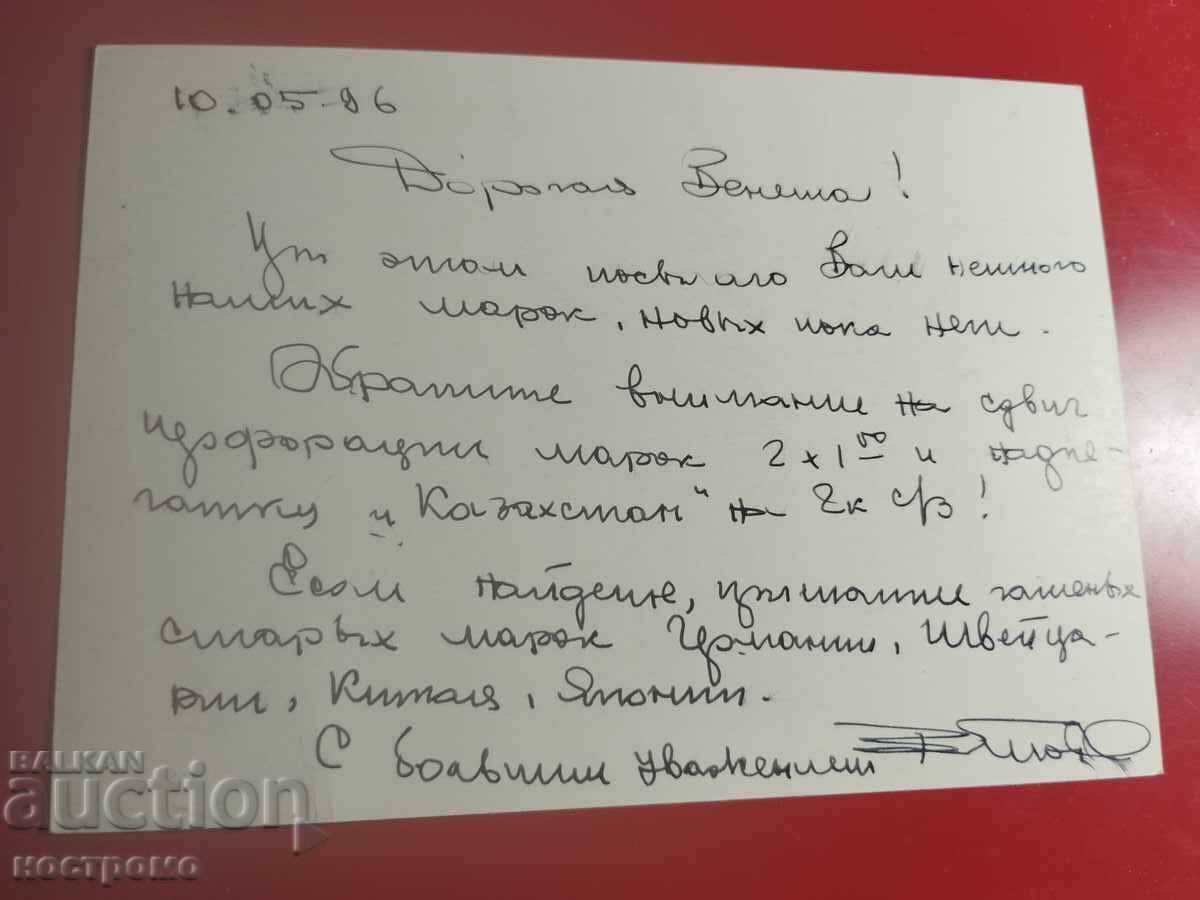 10.05.96
Дорогая Венета!
При этом посылаю Вам немного
наших марок, новых пока нет.
Обратите внимание на сдвиг
перфорации марок 2х1⁰⁰ и надпе-
чатку "Казахстан" на 2к с/з!
Если найдете, пришлите гашеных
старых марок Германии, Швейца-
рии, Китая, Японии.
С большим уважением
BALKAN
auction
костромо